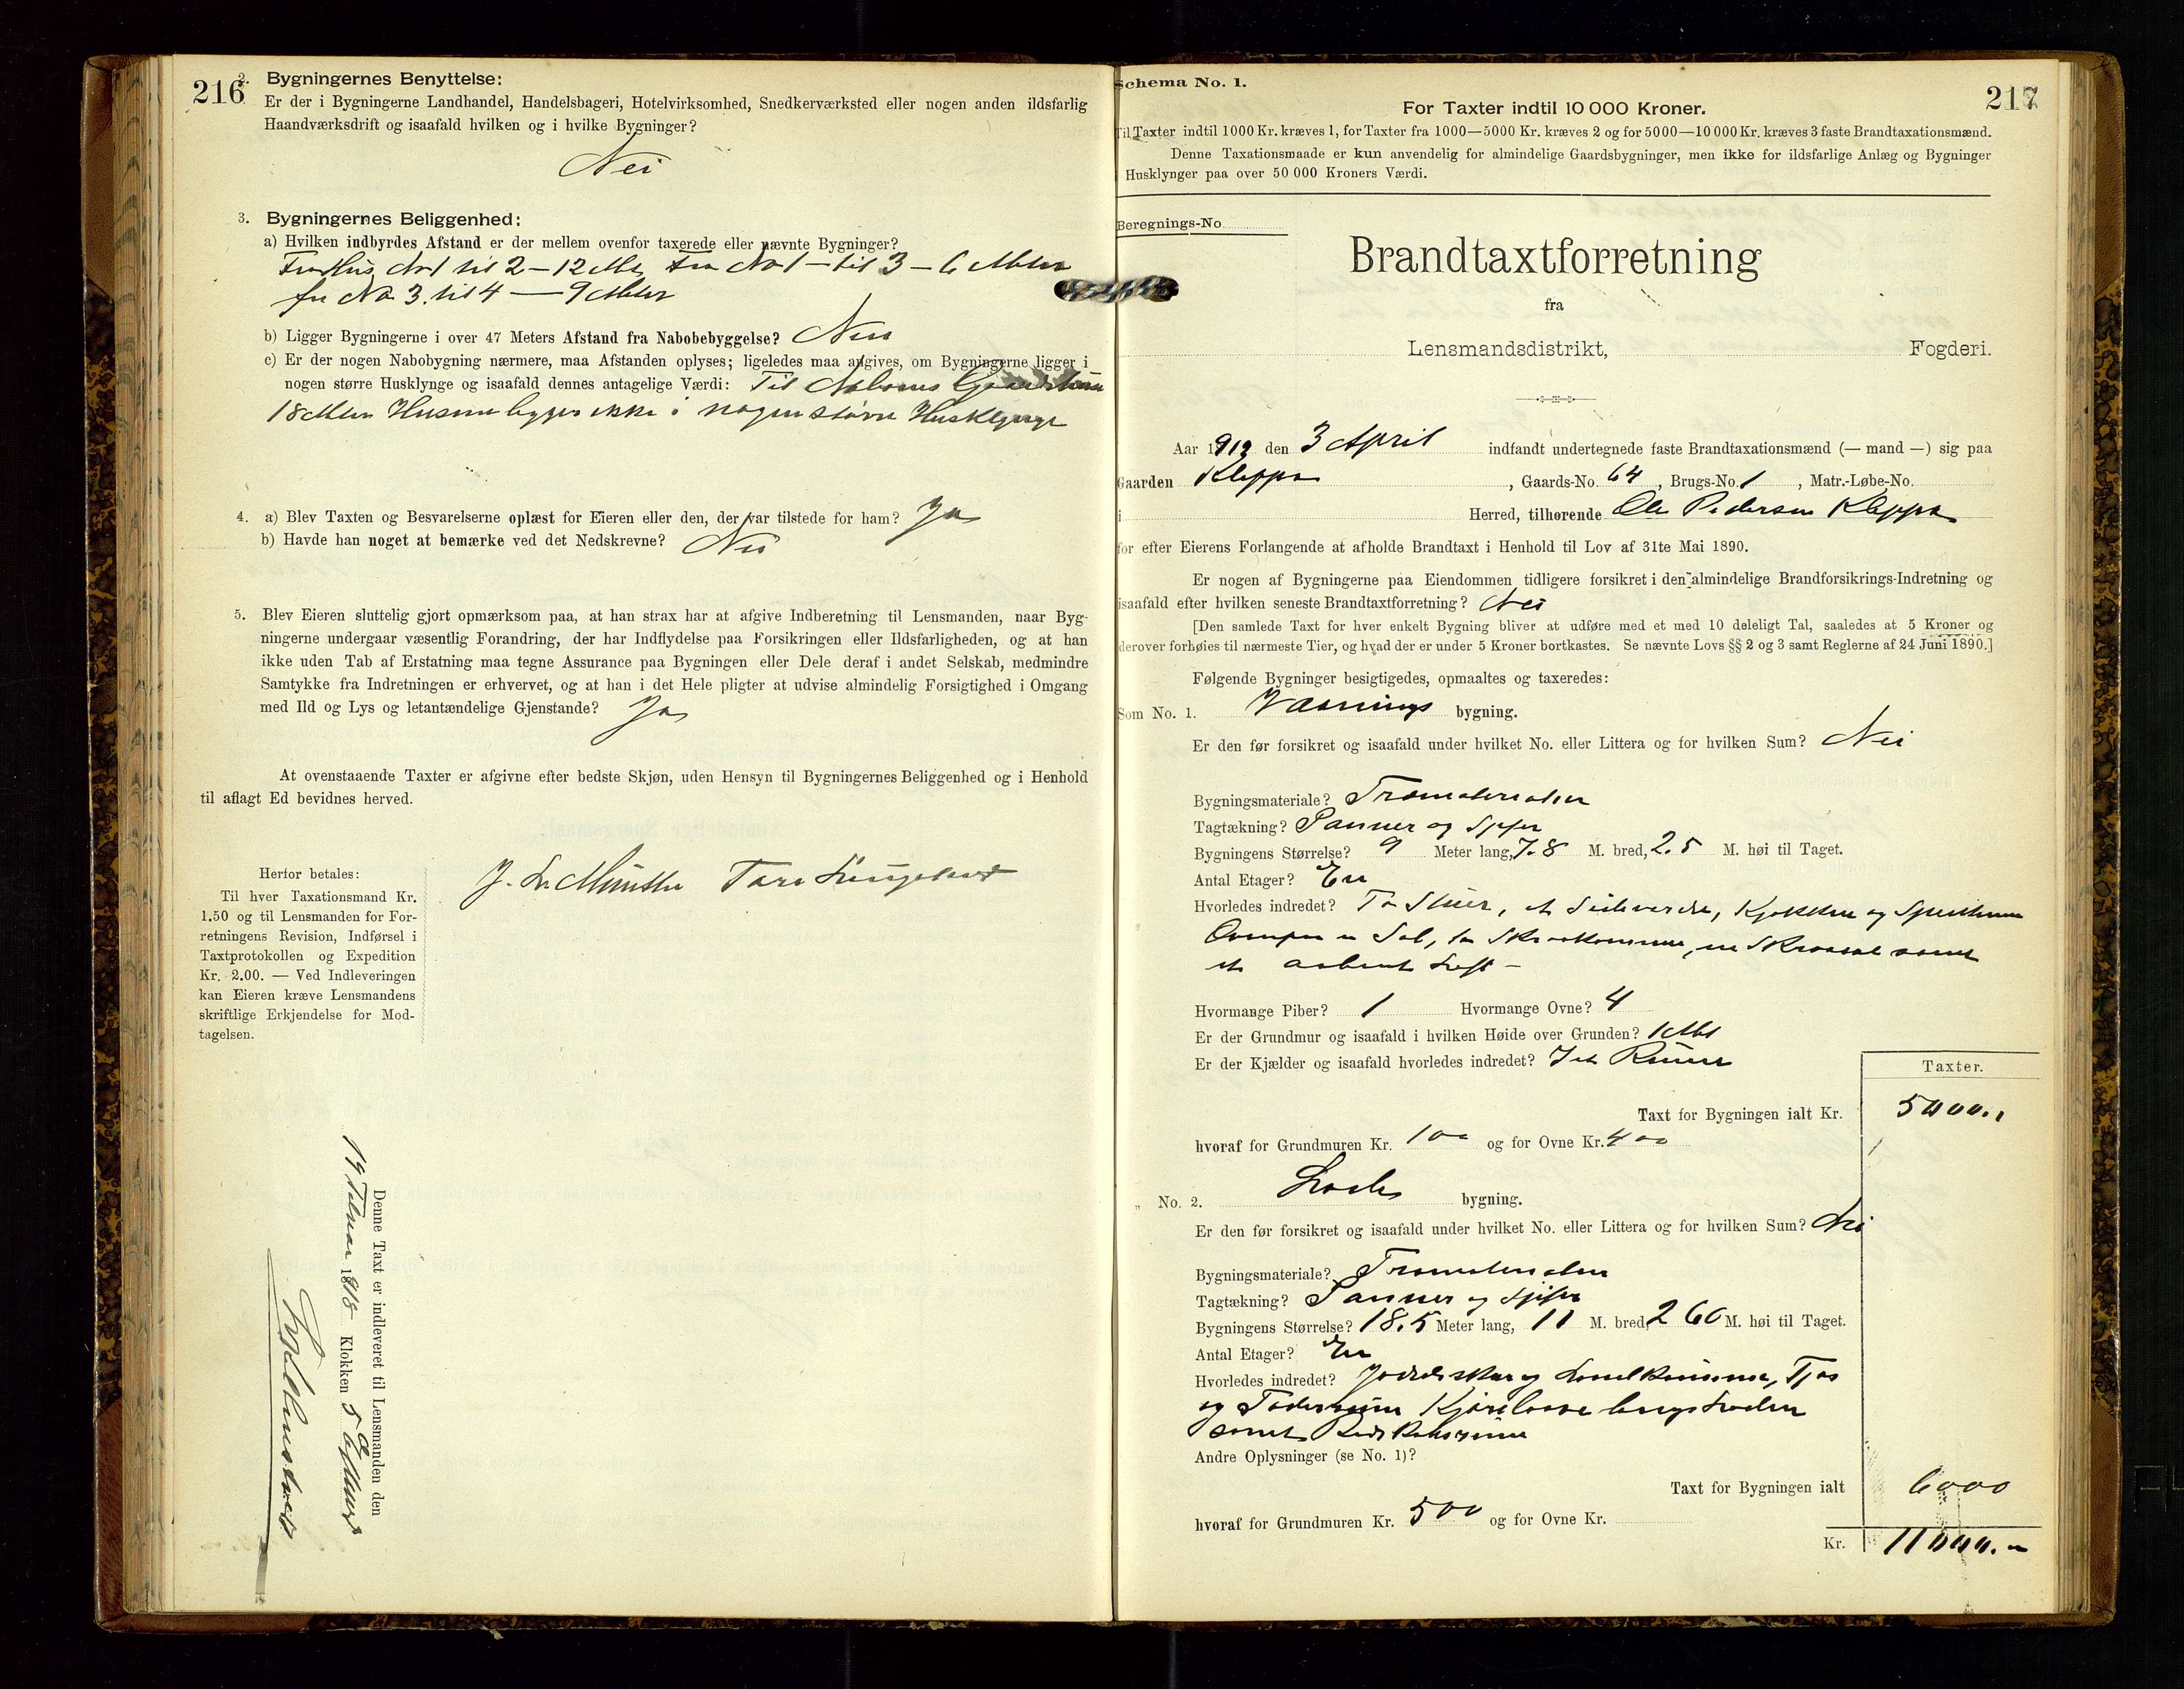 216
2. Bygningernes Benyttelse:
Er der i Bygningerne Landhandel, Handelsbageri, Hotelvirksomhed, Snedkerværksted eller nogen anden ildsfarlig
Haandværksdrift og isaafald hvilken og i hvilke Bygninger?
Nei
3. Bygningernes Beliggenhed:
a) Hvilken indbyrdes Afstand er der mellem ovenfor taxerede eller nævnte Bygninger?
Fra Hus No 1 til 2 – 12 Mtr, Fra No 1 – til 3 – 6 Meter
fra No 3. til 4 — 9 Meter
b) Ligger Bygningerne i over 47 Meters Afstand fra Nabobebyggelse? Nei
c) Er der nogen Nabobygning nærmere, maa Afstanden oplyses; ligeledes maa angives, om Bygningerne ligger i
nogen større Husklynge og isaafald dennes antagelige Værdi: Til Naboens
18 Meter Husene ligger ikke i nogen større Husklynge
4. a) Blev Taxten og Besvarelserne oplæst for Eieren eller den, der var tilstede for ham? Ja
b) Havde han noget at bemærke ved det Nedskrevne? Nei
5. Blev Eieren sluttelig gjort opmærksom paa, at han strax har at afgive Indberetning til Lensmanden, naar Byg-
ningerne undergaar væsentlig Forandring, der har Indflydelse paa Forsikringen eller Ildsfarligheden, og at han
ikke uden Tab af Erstatning maa tegne Assurance paa Bygningen eller Dele deraf i andet Selskab, medmindre
Samtykke fra Indretningen er erhvervet, og at han i det Hele pligter at udvise almindelig Forsigtighed i Omgang
med Ild og Lys og letantændelige Gjenstande? Ja
At ovenstaaende Taxter er afgivne efter bedste Skjøn, uden Hensyn til Bygningernes Beliggenhed og i Henhold
til aflagt Ed bevidnes herved.
Herfor betales:
Til hver Taxationsmand Kr.
1.50 og til Lensmanden for For-
retningens Revision, Indførsel i
Taxtprotokollen og Expedition
Kr. 2.00. — Ved Indleveringen
kan Eieren kræve Lensmandens
skriftlige Erkjendelse for Mod-
tagelsen.
Denne Taxt er indleveret til Lensmanden den
19 Februar 1918 Klokken 5
Schema No. 1.
217
For Taxter indtil 10 000 Kroner.
Til Taxter indtil 1000 Kr. kræves 1, for Taxter fra 1000—5000 Kr. kræves 2 og for 5000—10 000 Kr. kræves 3 faste Brandtaxationsmænd.
Denne Taxationsmaade er kun anvendelig for almindelige Gaardsbygninger, men ikke for ildsfarlige Anlæg og Bygninger
i Husklynger paa over 50 000 Kroners Værdi.
Beregnings-No.
Brandtaxtforretning
fra
Lensmandsdistrikt, Fogderi.
Aar 1912 den 3 April indfandt undertegnede faste Brandtaxationsmænd (— mand —) sig paa
Gaarden Kleppa, Gaards-No. 64, Brugs-No. 1, Matr.-Løbe-No.
i Herred, tilhørende Ole Pedersen Kleppa
for efter Eierens Forlangende at afholde Brandtaxt i Henhold til Lov af 31te Mai 1890.
Er nogen af Bygningerne paa Eiendommen tidligere forsikret i den almindelige Brandforsikrings-Indretning og
isaafald efter hvilken seneste Brandtaxtforretning? Nei
[Den samlede Taxt for hver enkelt Bygning bliver at udføre med et med 10 deleligt Tal, saaledes at 5 Kroner og
derover forhøies til nærmeste Tier, og hvad der er under 5 Kroner bortkastes. Se nævnte Lovs §§ 2 og 3 samt Reglerne af 24 Juni 1890.]
Følgende Bygninger besigtigedes, opmaaltes og taxeredes:
Som No. 1. Vaanings bygning.
Er den før forsikret og isaafald under hvilket No. eller Littera og for hvilken Sum? Nei
Bygningsmateriale? Træmaterialer
Tagtækning? Panner og
Bygningens Størrelse? 9 Meter lang, 7.8 M. bred, 2.5 M. høi til Taget.
Antal Etager? En
Hvorledes indredet? To Stuer, et Sideværelse, Kjøkken og
Ovenpaa en Sal, to Skraakammer, en samt
et aabent Loft –
Hvormange Piber? 1 Hvormange Ovne? 4
Er der Grundmur og isaafald i hvilken Høide over Grunden? 1 Mtr
Er der Kjælder og isaafald hvorledes indredet?
Taxter.
Taxt for Bygningen ialt Kr. 5000.
hvoraf for Grundmuren Kr. 100 og for Ovne Kr. 400
„ No. 2. bygning.
Er den før forsikret og isaafald under hvilket No. eller Littera og for hvilken Sum? Nei
Bygningsmateriale? Træmaterialer
Tagtækning? Panner og
Bygningens Størrelse? 18.5 Meter lang, 11 M. bred, 2 60 M. høi til Taget.
Antal Etager? En
Hvorledes indredet?
og
samt
Andre Oplysninger (se No. 1)?
Taxt for Bygningen ialt 6000
hvoraf for Grundmuren Kr. 500 og for Ovne Kr.
Kr. 11000.